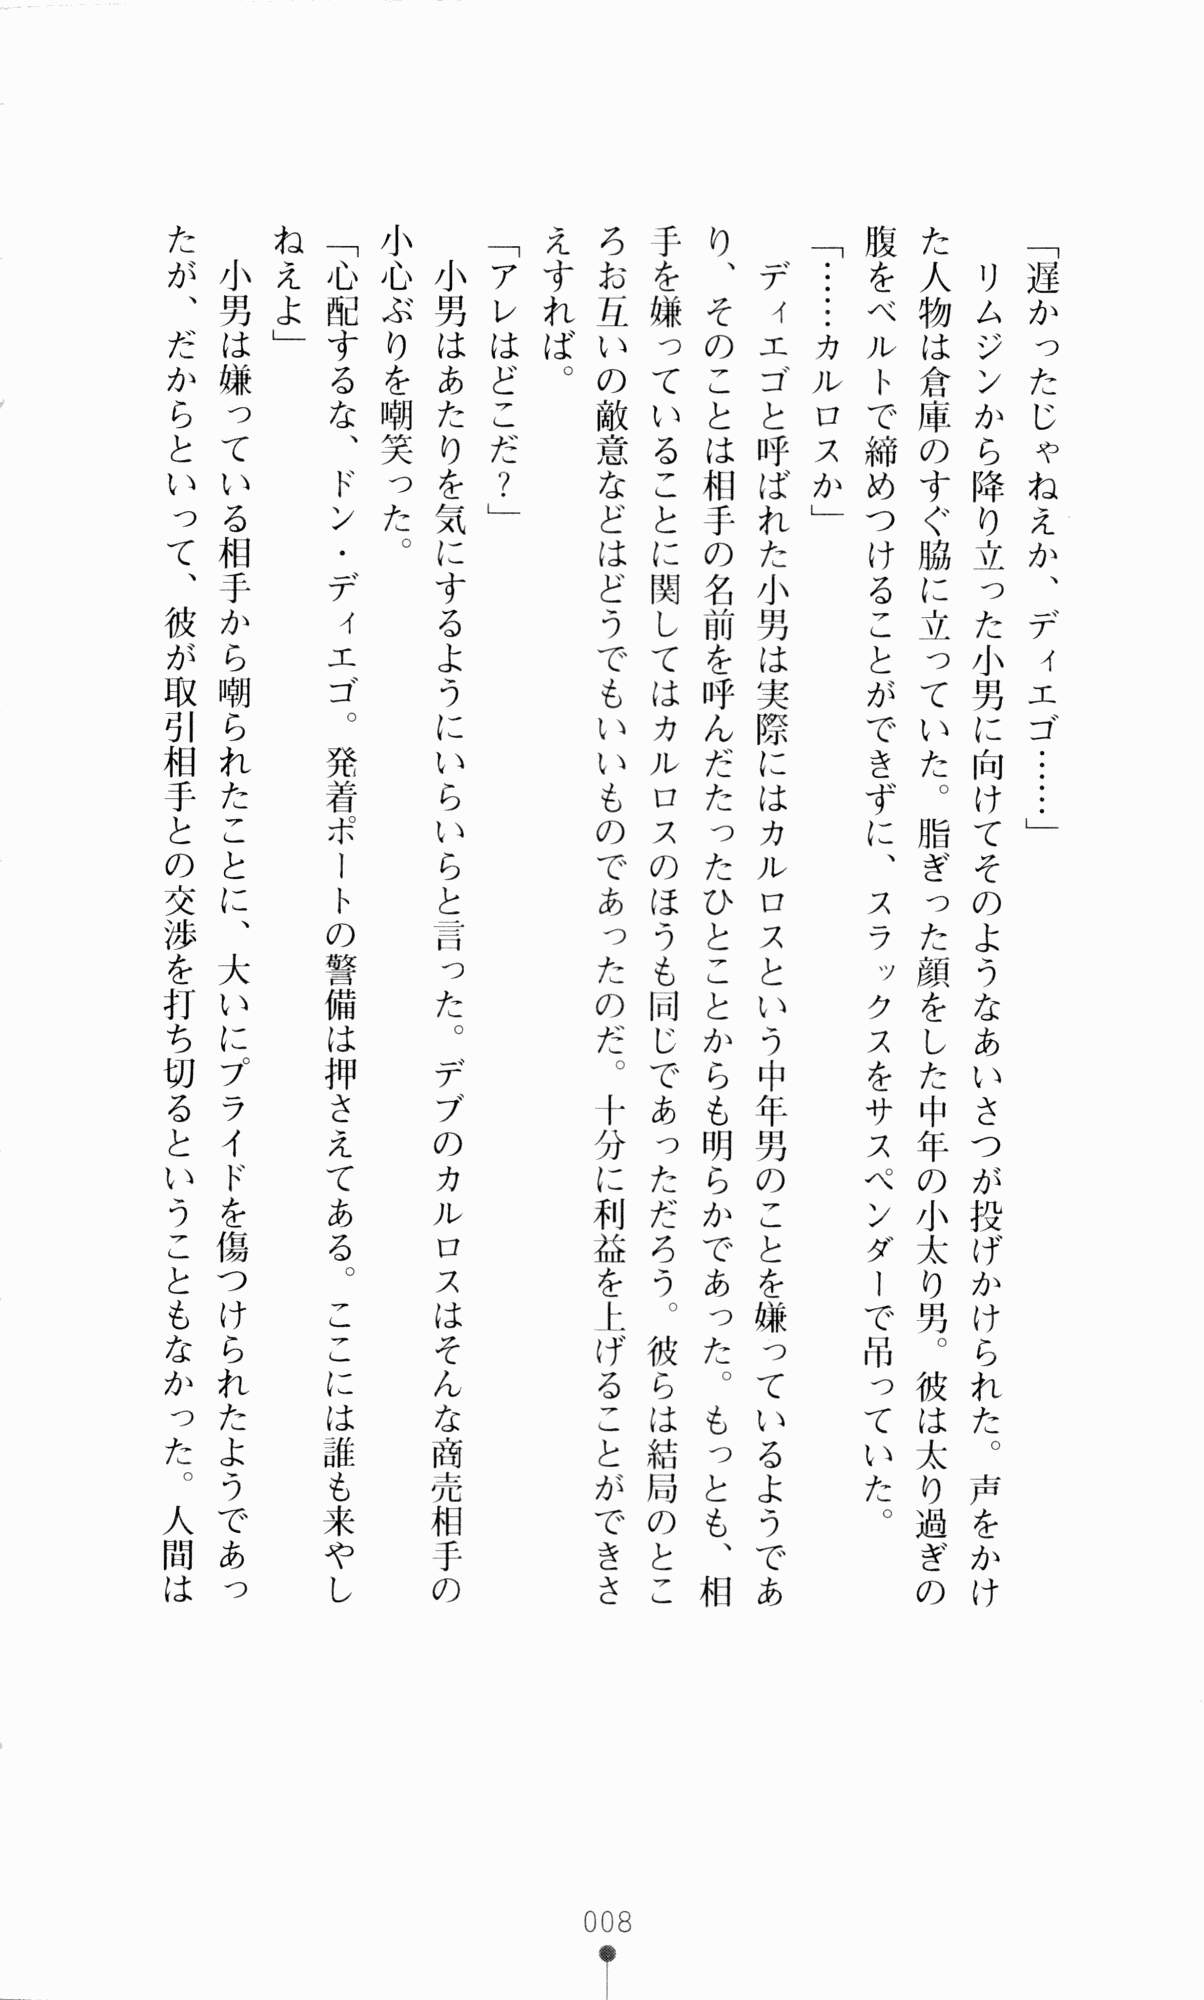 「遅かったじゃねえか、ディエゴ……」
　リムジンから降り立った小男に向けてそのようなあいさつが投げかけられた。声をかけ
た人物は倉庫のすぐ脇に立っていた。脂ぎった顔をした中年の小太り男。彼は太り過ぎの
腹をベルトで締めつけることができずに、スラックスをサスペンダーで吊っていた。
「……カルロスか」
　ディエゴと呼ばれた小男は実際にはカルロスという中年男のことを嫌っているようであ
り、そのことは相手の名前を呼んだたったひとことからも明らかであった。もっとも、相
手を嫌っていることに関してはカルロスのほうも同じであっただろう。彼らは結局のとこ
ろお互いの敵意などはどうでもいいものであったのだ。十分に利益を上げることができさ
えすれば。
「アレはどこだ？」
　小男はあたりを気にするようにいらいらと言った。デブのカルロスはそんな商売相手の
小心ぶりを嘲笑った。
「心配するな、ドン・ディエゴ。発着ポートの警備は押さえてある。ここには誰も来やし
ねえよ」
　小男は嫌っている相手から嘲られたことに、大いにプライドを傷つけられたようであっ
たが、だからといって、彼が取引相手との交渉を打ち切るということもなかった。人間は
008